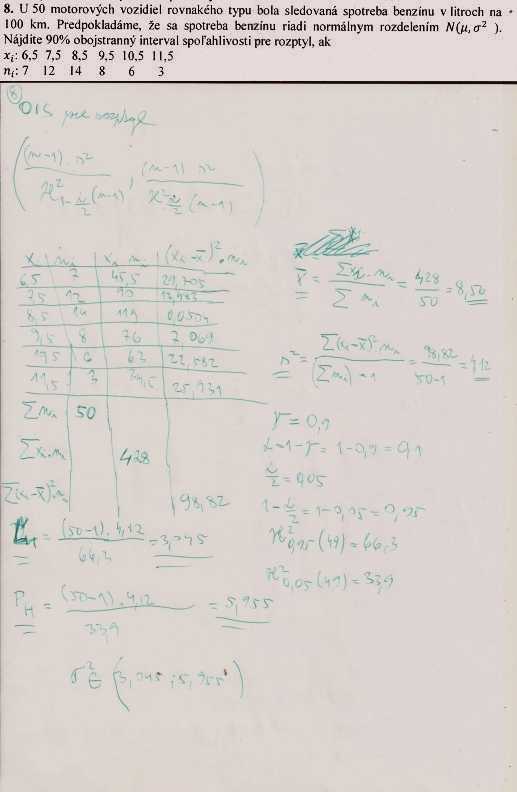 8. U 50 motorových vozidiel rovnakého typu bola sledovaná spotreba benzínu v litroch na
100 km. Predpokladáme, že sa spotreba benzínu riadi normálnym rozdelením N(μ,σ² ).
Nájdite 90% obojstranný interval spoľahlivosti pre rozptyl, ak
xᵢ: 6,5 7,5 8,5 9,5 10,5 11,5
nᵢ: 7 12 14 8 6 3
8
OIS pre rozptyl
(n-1) . s² , (n-1) s²
ϰ²1-α/2 (n-1) ϰ²α/2 (n-1)
xᵢ nᵢ xᵢ nᵢ (xᵢ - x̄)² . nᵢ
6,5 7 45,5
7,5 12 90
8,5 14 119
9,5 8 76 7,069
6 63
11,5 3 25,931
∑nᵢ 50
∑xᵢ.nᵢ 428
∑(xᵢ-x̄)².nᵢ 98,82
x̄ = ∑xᵢ.nᵢ / ∑nᵢ = 428 / 50 = 8,56
s² = ∑(xᵢ-x̄)².nᵢ / (∑nᵢ) - 1 = 98,82 / 50-1
γ = 0,9
α = 1-γ = 1-0,9 = 0,1
α/2 = 0,05
1-α/2 = 1-0,05 = 0,95
ϰ²0,95 (49) = 66,3
ϰ²0,05 (49) = 33,9
= (50-1) . 4,12 / 66,3 = 3,045
P_H = (50-1) . 4,12 / 33,9 = 5,955
σ² ∈ (3,045 ; 5,955)